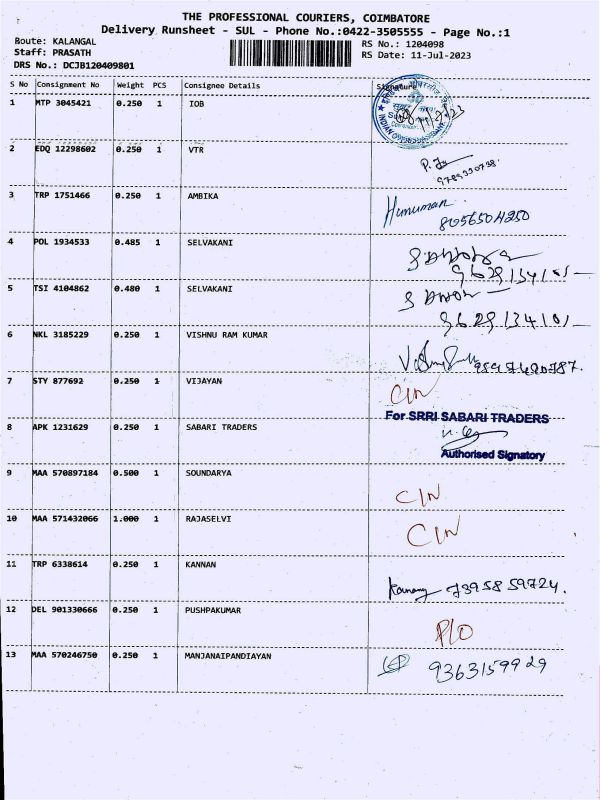 THE PROFESSIONAL COURIERS, COIMBATORE
Delivery Runsheet - SUL - Phone No.:0422-3505555 - Page No.:1
Boute: KALANGAL
Staff: PRASATH
DRS No.: DCJB120409801
RS No.: 1204098
RS Date: 11-Jul-2023
S No Consignment No Weight PCS Consignee Details Signature
1 MTP 3045421 0.250 1 IOB 11/7/23
2 EDQ 12298602 0.250 1 VTR
3 TRP 1751466 0.250 1 AMBIKA Hanuman 8056504250
4 POL 1934533 0.485 1 SELVAKANI 9629134101-
5 TSI 4104862 0.480 1 SELVAKANI 9629134101-
6 NKL 3185229 0.250 1 VISHNU RAM KUMAR
7 STY 877692 0.250 1 VIJAYAN C/N
For SRRI SABARI TRADERS
8 APK 1231629 0.250 1 SABARI TRADERS
Authorised Signatory
9 MAA 570897184 0.500 1 SOUNDARYA C/N
10 MAA 571432066 1.000 1 RAJASELVI C/N
11 TRP 6338614 0.250 1 KANNAN 7395859724.
12 DEL 901330666 0.250 1 PUSHPAKUMAR P/O
13 MAA 570246750 0.250 1 MANJANAIPANDIAYAN 9363159929